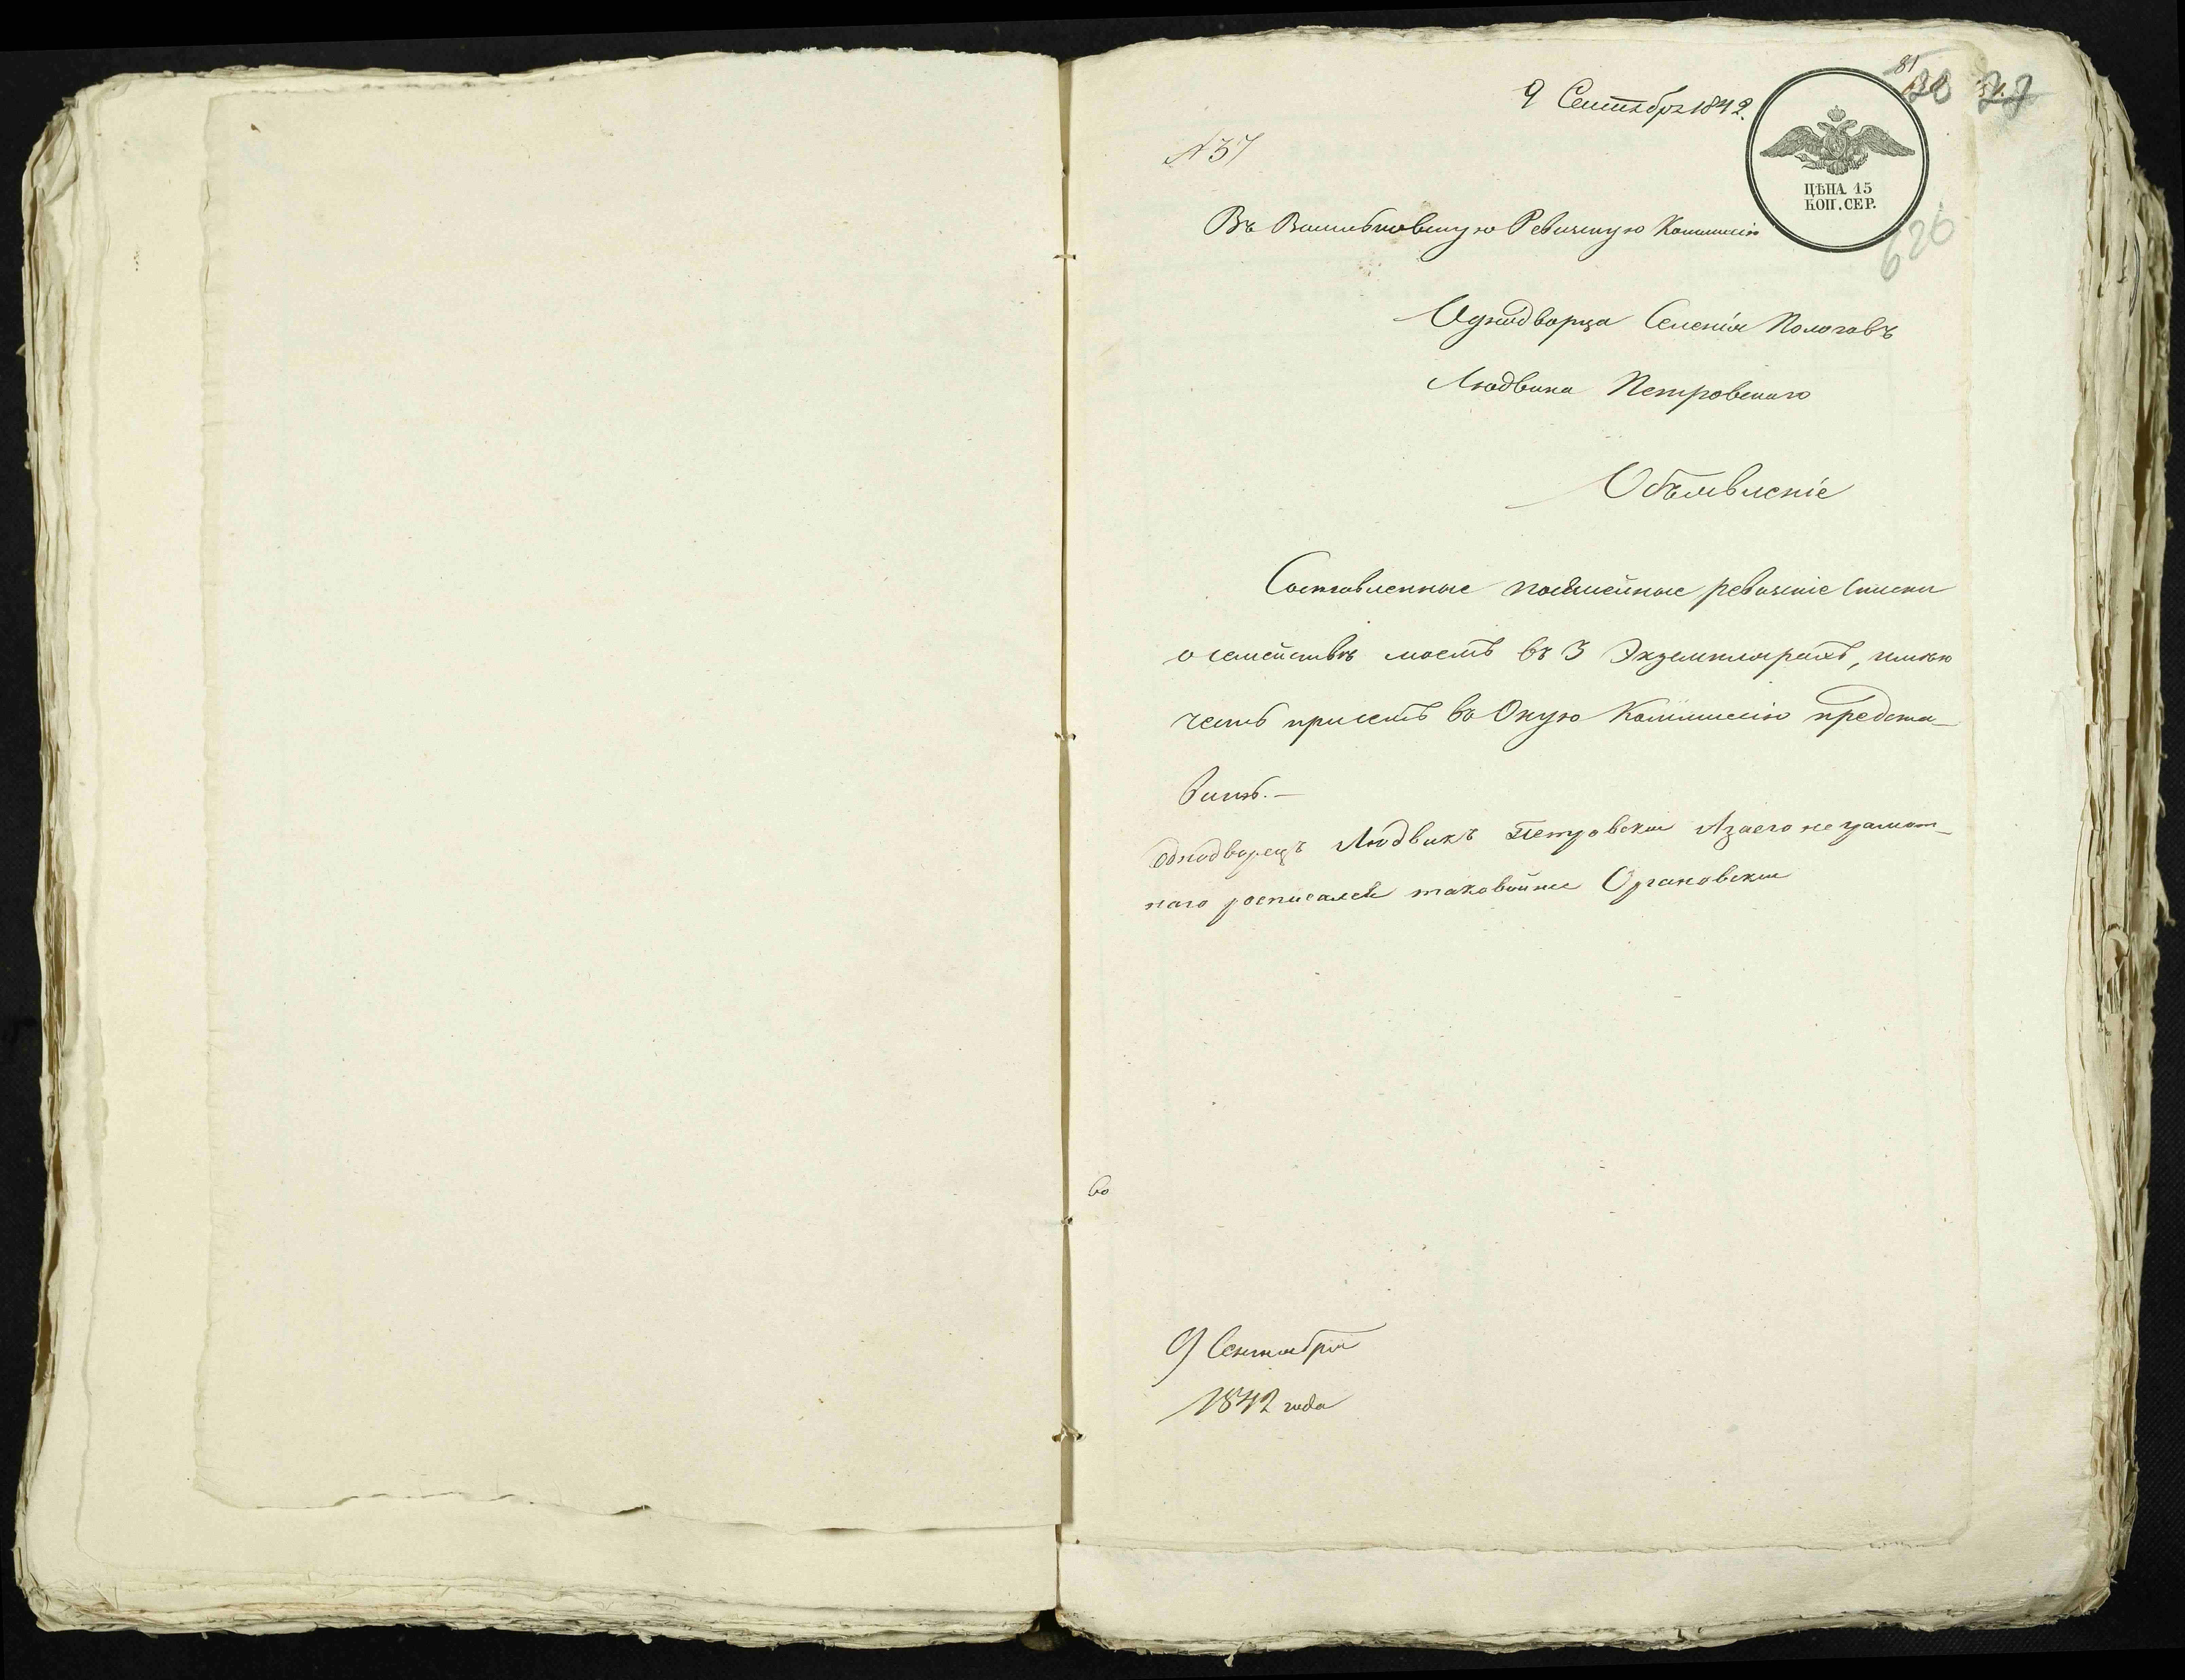 9 Сентября 1842.
№ 37
ЦѢНА 15
КОП. СЕР.
626
Въ Ревизкую Коммисію
Однодворца Селенія Пологовъ
Людвика Петровскаго
Объявленіе
Составленные посемейные ревизкіе списки
о семействѣ моемъ въ 3 Экземплярахъ, имѣю
честь при семъ во Оную Коммисію предста-
вить.—
Однодворецъ Людвикъ Петровски А заего неграмот-
наго росписался таковойже
во
9 Сентября
1842 года